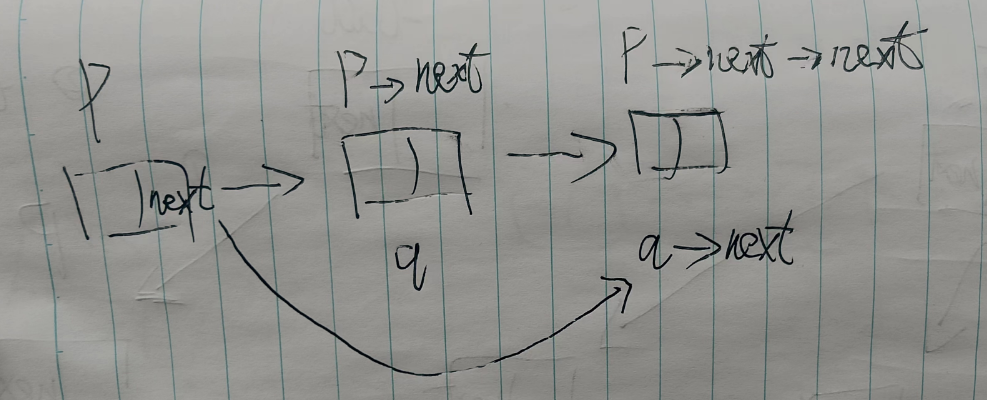 P
P→next
P→next→next
next
q
q→next